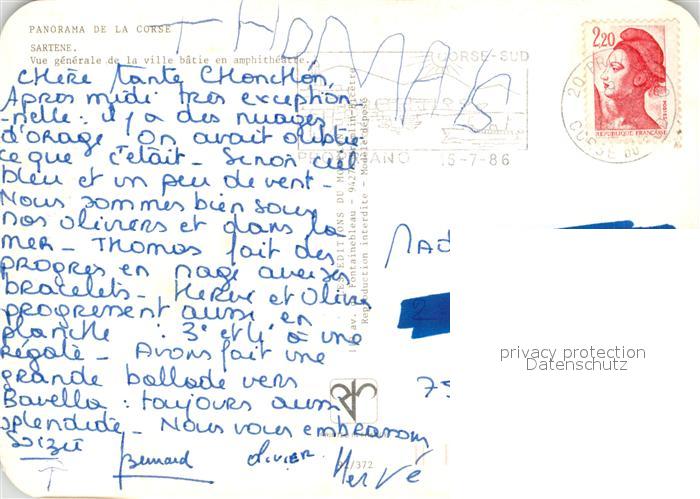 PANORAMA DE LA CORSE
SARTENE.
Vue générale de la ville bâtie en amphithéatre.
THOMAS
CORSE-SUD
PROPRIANO 15-7-86
2,20
REPUBLIQUE FRANÇAISE
Chère tante Chonchon,
Apres midi tres exception
-nelle : il y a des nuages
d'orage ! On avait oublié
ce que c'était - Sinon ciel
bleu et un peu de vent -
Nous sommes bien sous
nos oliviers et dans la
mer - Thomas fait des
progres en nage avec ses
bracelets - Hervé et Olivier
progressent aussi en
planche : 3e et 4 à une
régate - Avons fait une
grande ballade vers
Bavella : toujours aussi
splendide - Nous vous embrassons
Bernard Olivier Hervé
LES EDITIONS DU
av. Fontainebleau - 942
Reproduction interdite - Modèle déposé
/372
75
privacy protection
Datenschutz